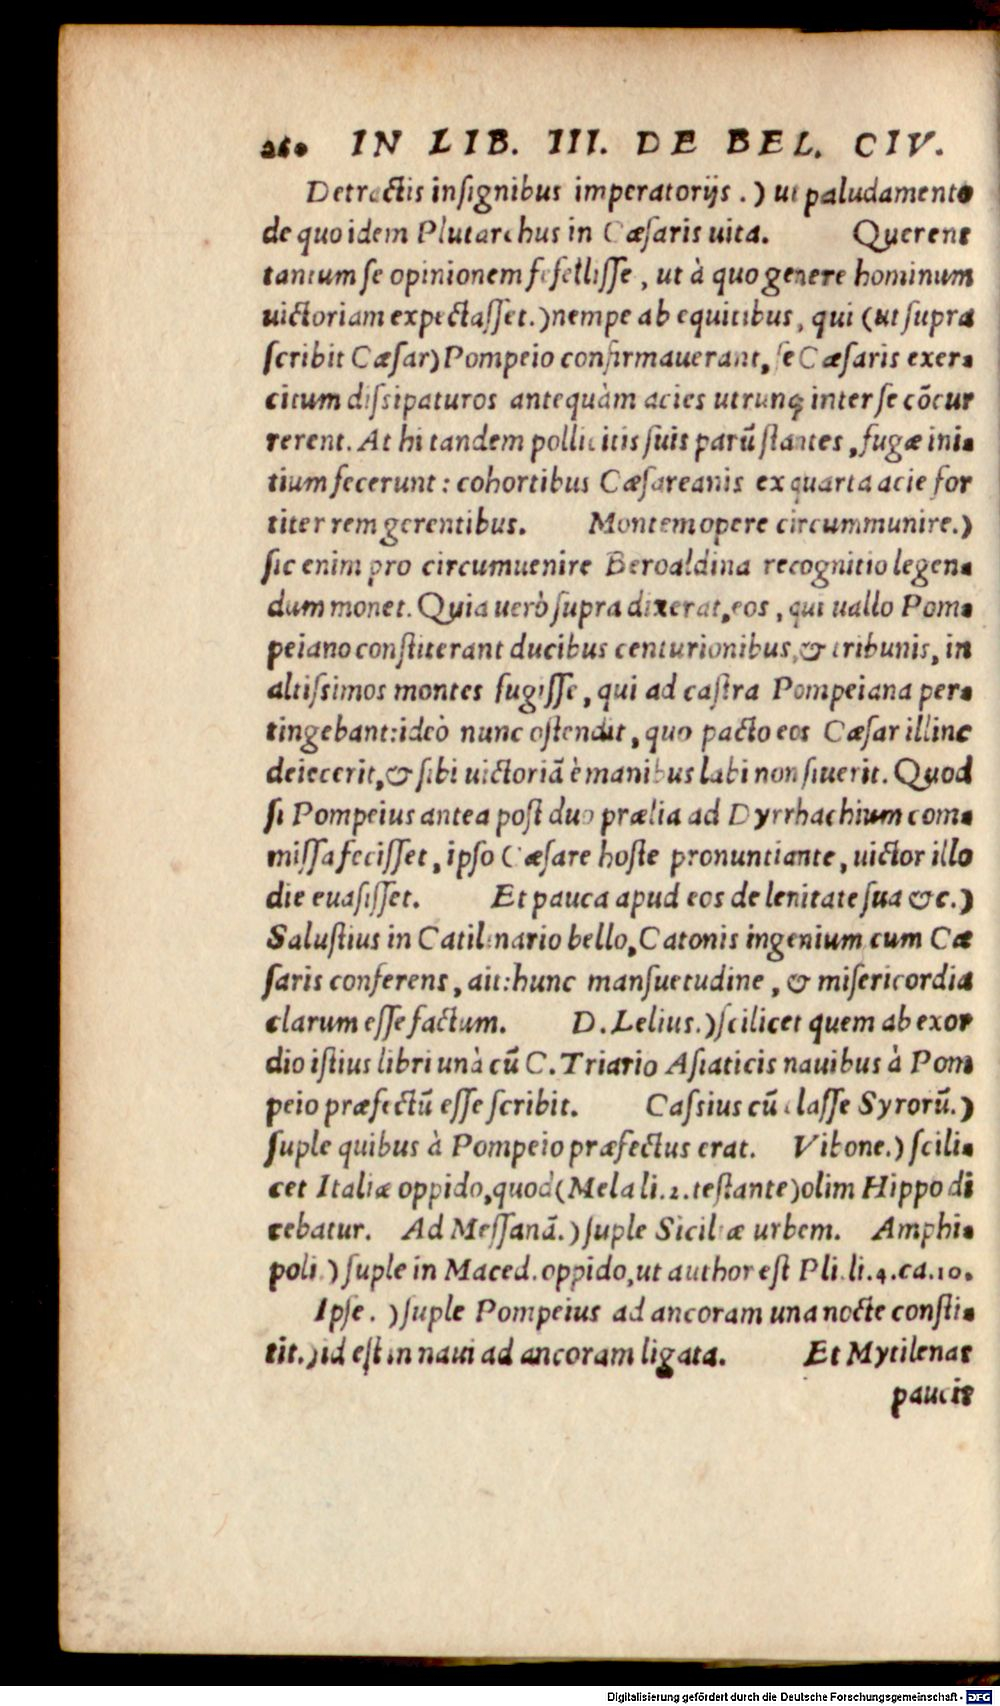 260 IN LIB. III. DE BEL. CIV.
Detractis insignibus imperatorijs .) ut paludamento
de quo idem Plutarchus in Cæsaris uita. Querens
tantum se opinionem fefellisse, ut à quo genere hominum
uictoriam expectasset.) nempe ab equitibus, qui (ut supra
scribit Cæsar) Pompeio confirmauerant, se Cæsaris exer-
citum dissipaturos antequàm acies utrunq; inter se cõcur
rerent. At hi tandem pollicitis suis parũ stantes, fugæ ini-
tium fecerunt: cohortibus Cæsareanis ex quarta acie for
titer rem gerentibus. Montem opere circummunire.)
sic enim pro circumuenire Beroaldina recognitio legen-
dum monet. Quia uerò supra dixerat, eos, qui uallo Pom-
peiano constiterant ducibus centurionibus, & tribunis, in
altissimos montes fugisse, qui ad castra Pompeiana per-
tingebant: ideò nunc ostendit, quo pacto eos Cæsar illinc
deiecerit, & sibi uictoriã è manibus labi non siuerit. Quod
si Pompeius antea post duo prælia ad Dyrrhachium com-
missa fecisset, ipso Cæsare hoste pronuntiante, uictor illo
die euasisset. Et pauca apud eos de lenitate sua &c.)
Salustius in Catilinario bello, Catonis ingenium cum Cæ
saris conferens, ait: hunc mansuetudine, & misericordia
clarum esse factum. D. Lelius.) scilicet quem ab exor
dio istius libri unà cũ C. Triario Asiaticis nauibus à Pom
peio præfectũ esse scribit. Cassius cũ classe Syrorũ.)
suple quibus à Pompeio præfectus erat. Vibone.) scili-
cet Italiæ oppido, quod (Mela li. 2. testante) olim Hippo di
cebatur. Ad Messanã.) suple Siciliæ urbem. Amphi-
poli.) suple in Maced. oppido, ut author est Pli. li. 4. ca. 10.
Ipse .) suple Pompeius ad ancoram una nocte consti-
tit.) id est in naui ad ancoram ligata. Et Mytilenas
paucis
Digitalisierung gefördert durch die Deutsche Forschungsgemeinschaft - DFG